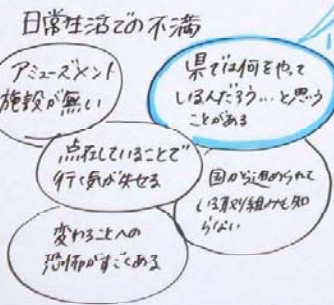 日常生活での不満
アミューズメント
施設が無い
県では何をやって
いるんだろう…と思う
ことがある
点在していることで
行く気が失せる
国から進められて
いる取り組みも知
らない
変わることへの
恐怖がすごくある